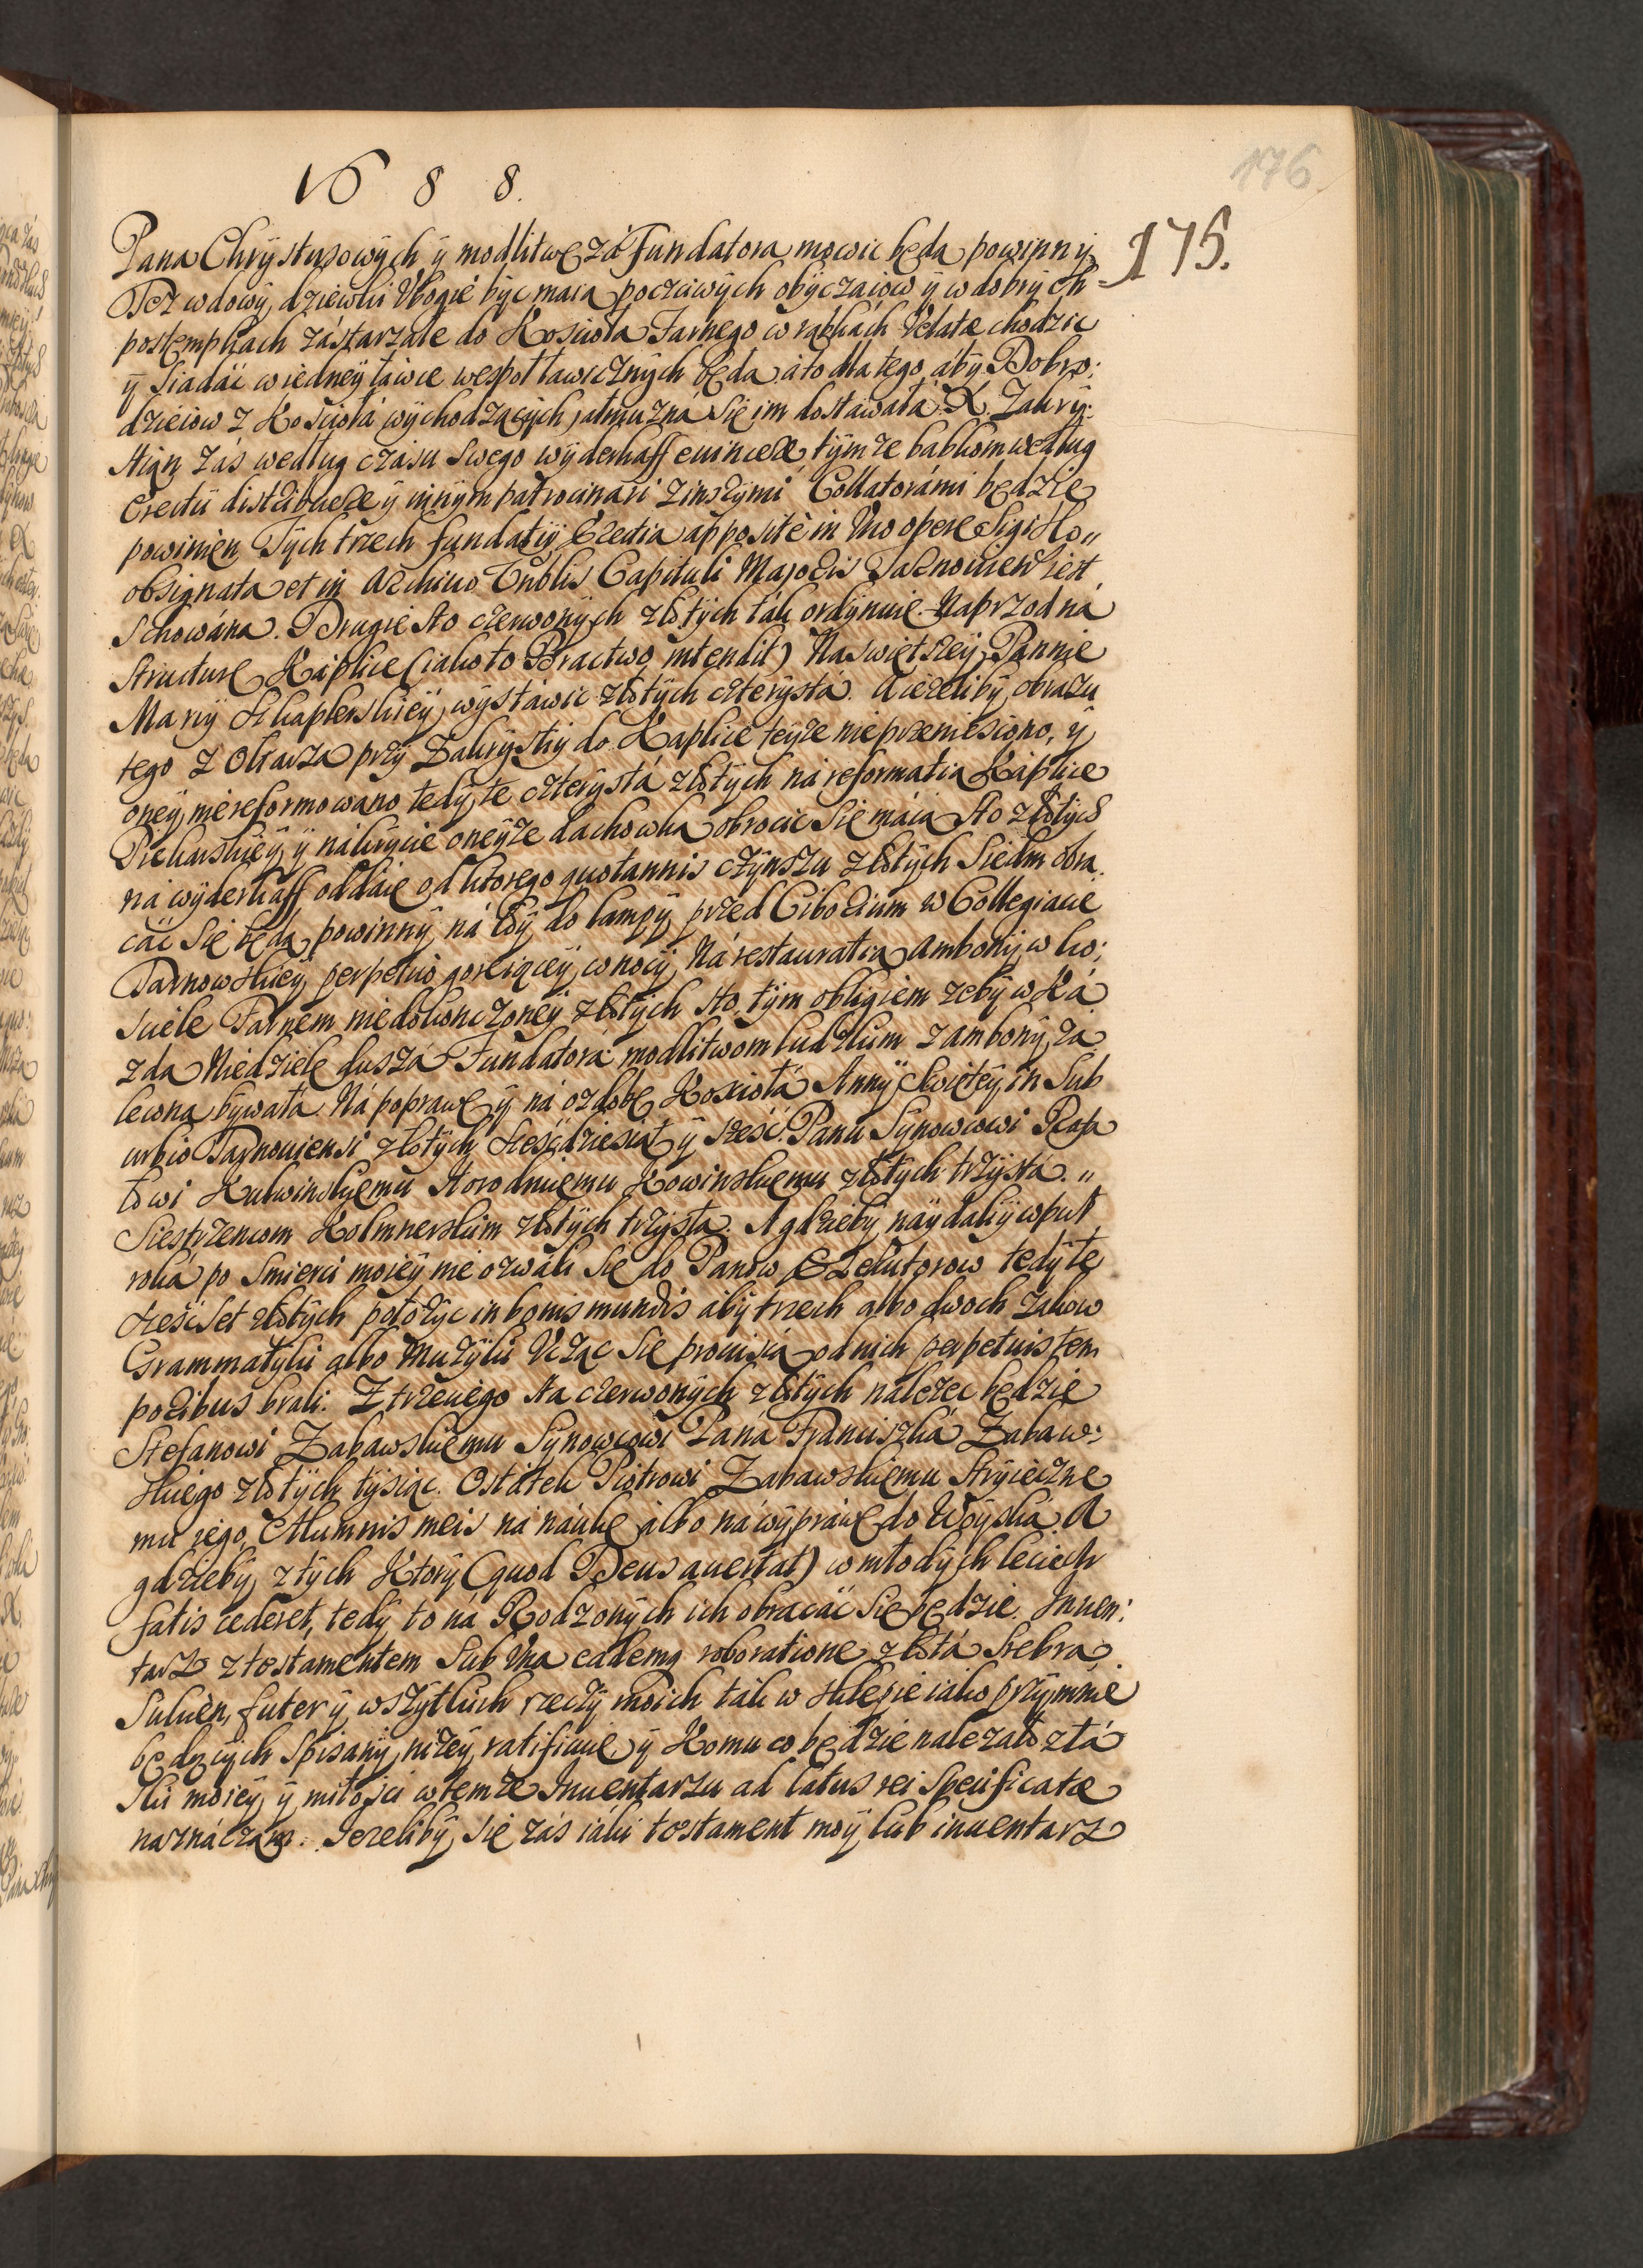 1688.
176.
175.
Pana Chrystusowych ÿ modlitwę zá Fundatora mowic będa powinny.
Tez wdowy, dziewki Vbogie byc maia poczciwych obyczaiow ÿ w dobrych
postempkach zástarzałe do Kosciola Farnego w rąbkách Velatæ chodzic
ÿ siadáć w iedneÿ ławce wespoł ławicznych będa, á to dla tego aby Dobro:
dzieiow z Kosciołá wychodzących iałmuzná się im dostawała. X. Zakry:
stian zás według czásu swego wyderkaff euincere tymze babkom według
Erectii distribuere ÿ innym patrocinari z inszymi Collatorámi będzie
powinien. Tych trzech fundatiÿ Erectia apposite in Vno opere Sigillo
obsignata et in Archiuo Tnblis Capituli Majoris Tarnouien iest
schowána. Drugie sto czerwonych złotych ták ordynuie. Naprzod ná
structurę Káplice (iako to Bractwo intendit) Naswiętszeÿ Pannie
Mariÿ Szkaplerskieÿ wystáwic złotych czterystá. A iezeliby obrazu
tego z Ołtarza przy Zakrystiÿ do Kaplice teÿze nie przeniesiono, ÿ
oneÿ nie reformowano tedy te czterystá złotych ná reformatia Káplice
Piekarskieÿ ÿ nákrycie oneÿze dachowka obrocic się máia. Sto złotych
ná wyderkaff oddáie od ktorego quotannis czynszu złotych siedm obra
cáć się będa powinny ná łoÿ do lampy przed Ciborium w Collegiacie
Tarnowskieÿ perpetuo goreiąceÿ w nocy. Ná restauratia ambony w ko:
sciele Farnem niedokonczoneÿ złotych sto, tym obligiem zeby w Ká
zda Niedziele duszá Fundatorá modlitwom ludzkim z ambony za
lecona bywała. Ná poprawę ÿ ná ozdobę Kosciołá Annÿ Swięteÿ in Sub
urbio Tarnouiensi złotych szesćdziesiąt ÿ szesć. Panu Synowcowi Rapa
łowi Kukwinskiemu Horodniemu Kowinskiemu złotych trzystá.
Siestrzencom Kolmnerskim złotych trzysta. A gdzieby naydaliÿ w puł
roká po smierci moieÿ nie ozwáli się do Panow Exekutorow tedy te
szesćset złotych połozyc in bonis mundis aby trzech albo dwoch zakow
Grammatyki albo Muzyki Vcząc się prowizia od nich perpetuis tem
poribus brali. Z trzeciego sta czerwonych złotych nalezec będzie
Stefanowi Zabawskiemu Synowcowi Pana Franciszká Zabaw:
skiego złotych tysiąc. Ostátek Piotrowi Zabawskiemu Stryieczne
mu iego, Alumnis meis ná náukę álbo ná wypráwę do Woyská. A
gdzieby z tych Ktory (quod Deus auertat) w młodych leciech
fatis cederet, tedy to ná Rodzonych ich obracáć się będzie. Inuen:
tarz z testamentem Sub Vna eademq roboratione złotá srebra
sukien, futer ÿ wszytkich rzeczy moich ták w sklepie iako przy mnie
będących spisany nizeÿ ratifikuie ÿ Komu co będzie nalezało z łá
ski moieÿ ÿ miłosci w temze Inuentarzu ad latus rei Specificatæ
naznáczam. Iezeliby się zás iáki testament moÿ lub inuentarz